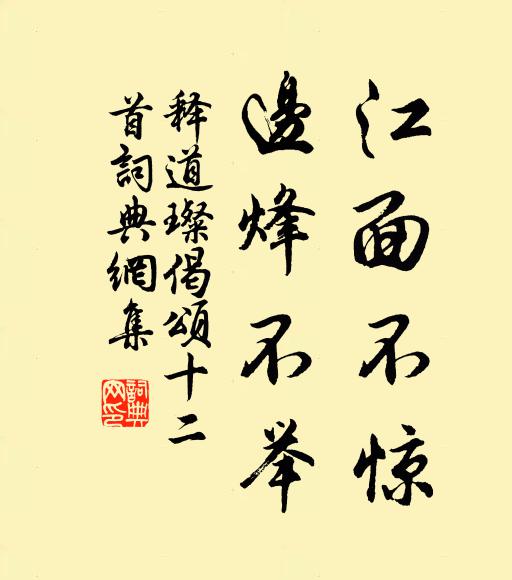 江面不惊
邊烽不举
释道璨偈頌十二
首詞典網集
詞典
网印